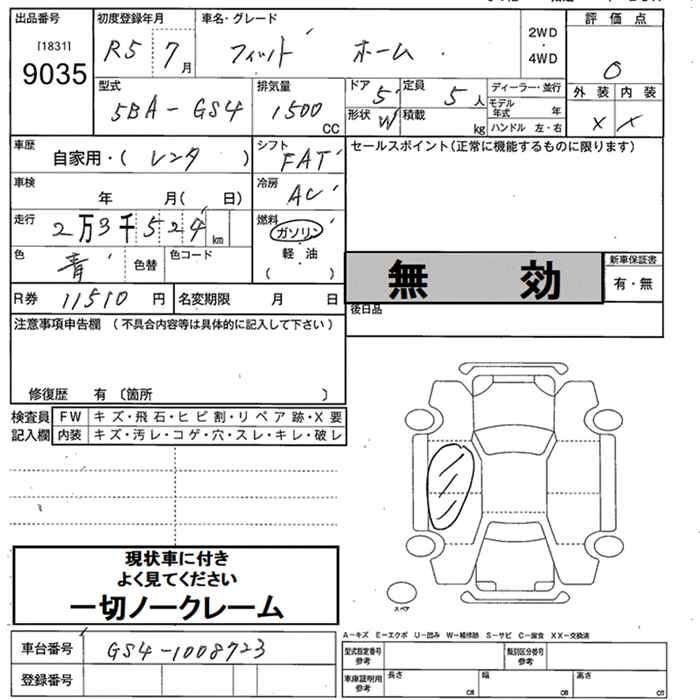 出品番号 初度登録年月 車名・グレード 評価点
[1831] 9035 R5 7月 フィット ホーム 2WD・4WD 0
型式 排気量 ドア 定員 ディーラー・並行 外装 内装
5BA-GS4 1500 CC 5 5人 モデル年式 年 × ×
形状 W 積載 kg ハンドル 左・右
車歴 シフト セールスポイント(正常に機能するものに限ります)
自家用・( レンタ ) FAT
車検 年 月( 日) 冷房 AC
走行 2万3千524km 燃料 ガソリン・軽油 ( )
色 青 色替 色コード
無効 新車保証書 有・無
R券 11510 円 名変期限 月 日 後日品
注意事項申告欄 (不具合内容等は具体的に記入して下さい)
修復歴 有 〔箇所 〕
検査員記入欄 FW キズ・飛石・ヒビ割・リペア跡・X要
内装 キズ・汚レ・コゲ・穴・スレ・キレ・破レ
現状車に付き
よく見てください
一切ノークレーム
スペア
A-キズ E-エクボ U-凹み W-補修跡 S-サビ C-腐食 XX-交換済
車台番号 GS4-1008723 型式指定番号参考 類別区分番号参考
登録番号 車庫証明用参考 長さ cm 幅 cm 高さ cm